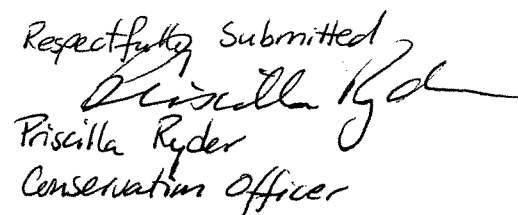 Respectfully Submitted
Priscilla Ryder
Priscilla Ryder
Conservation Officer